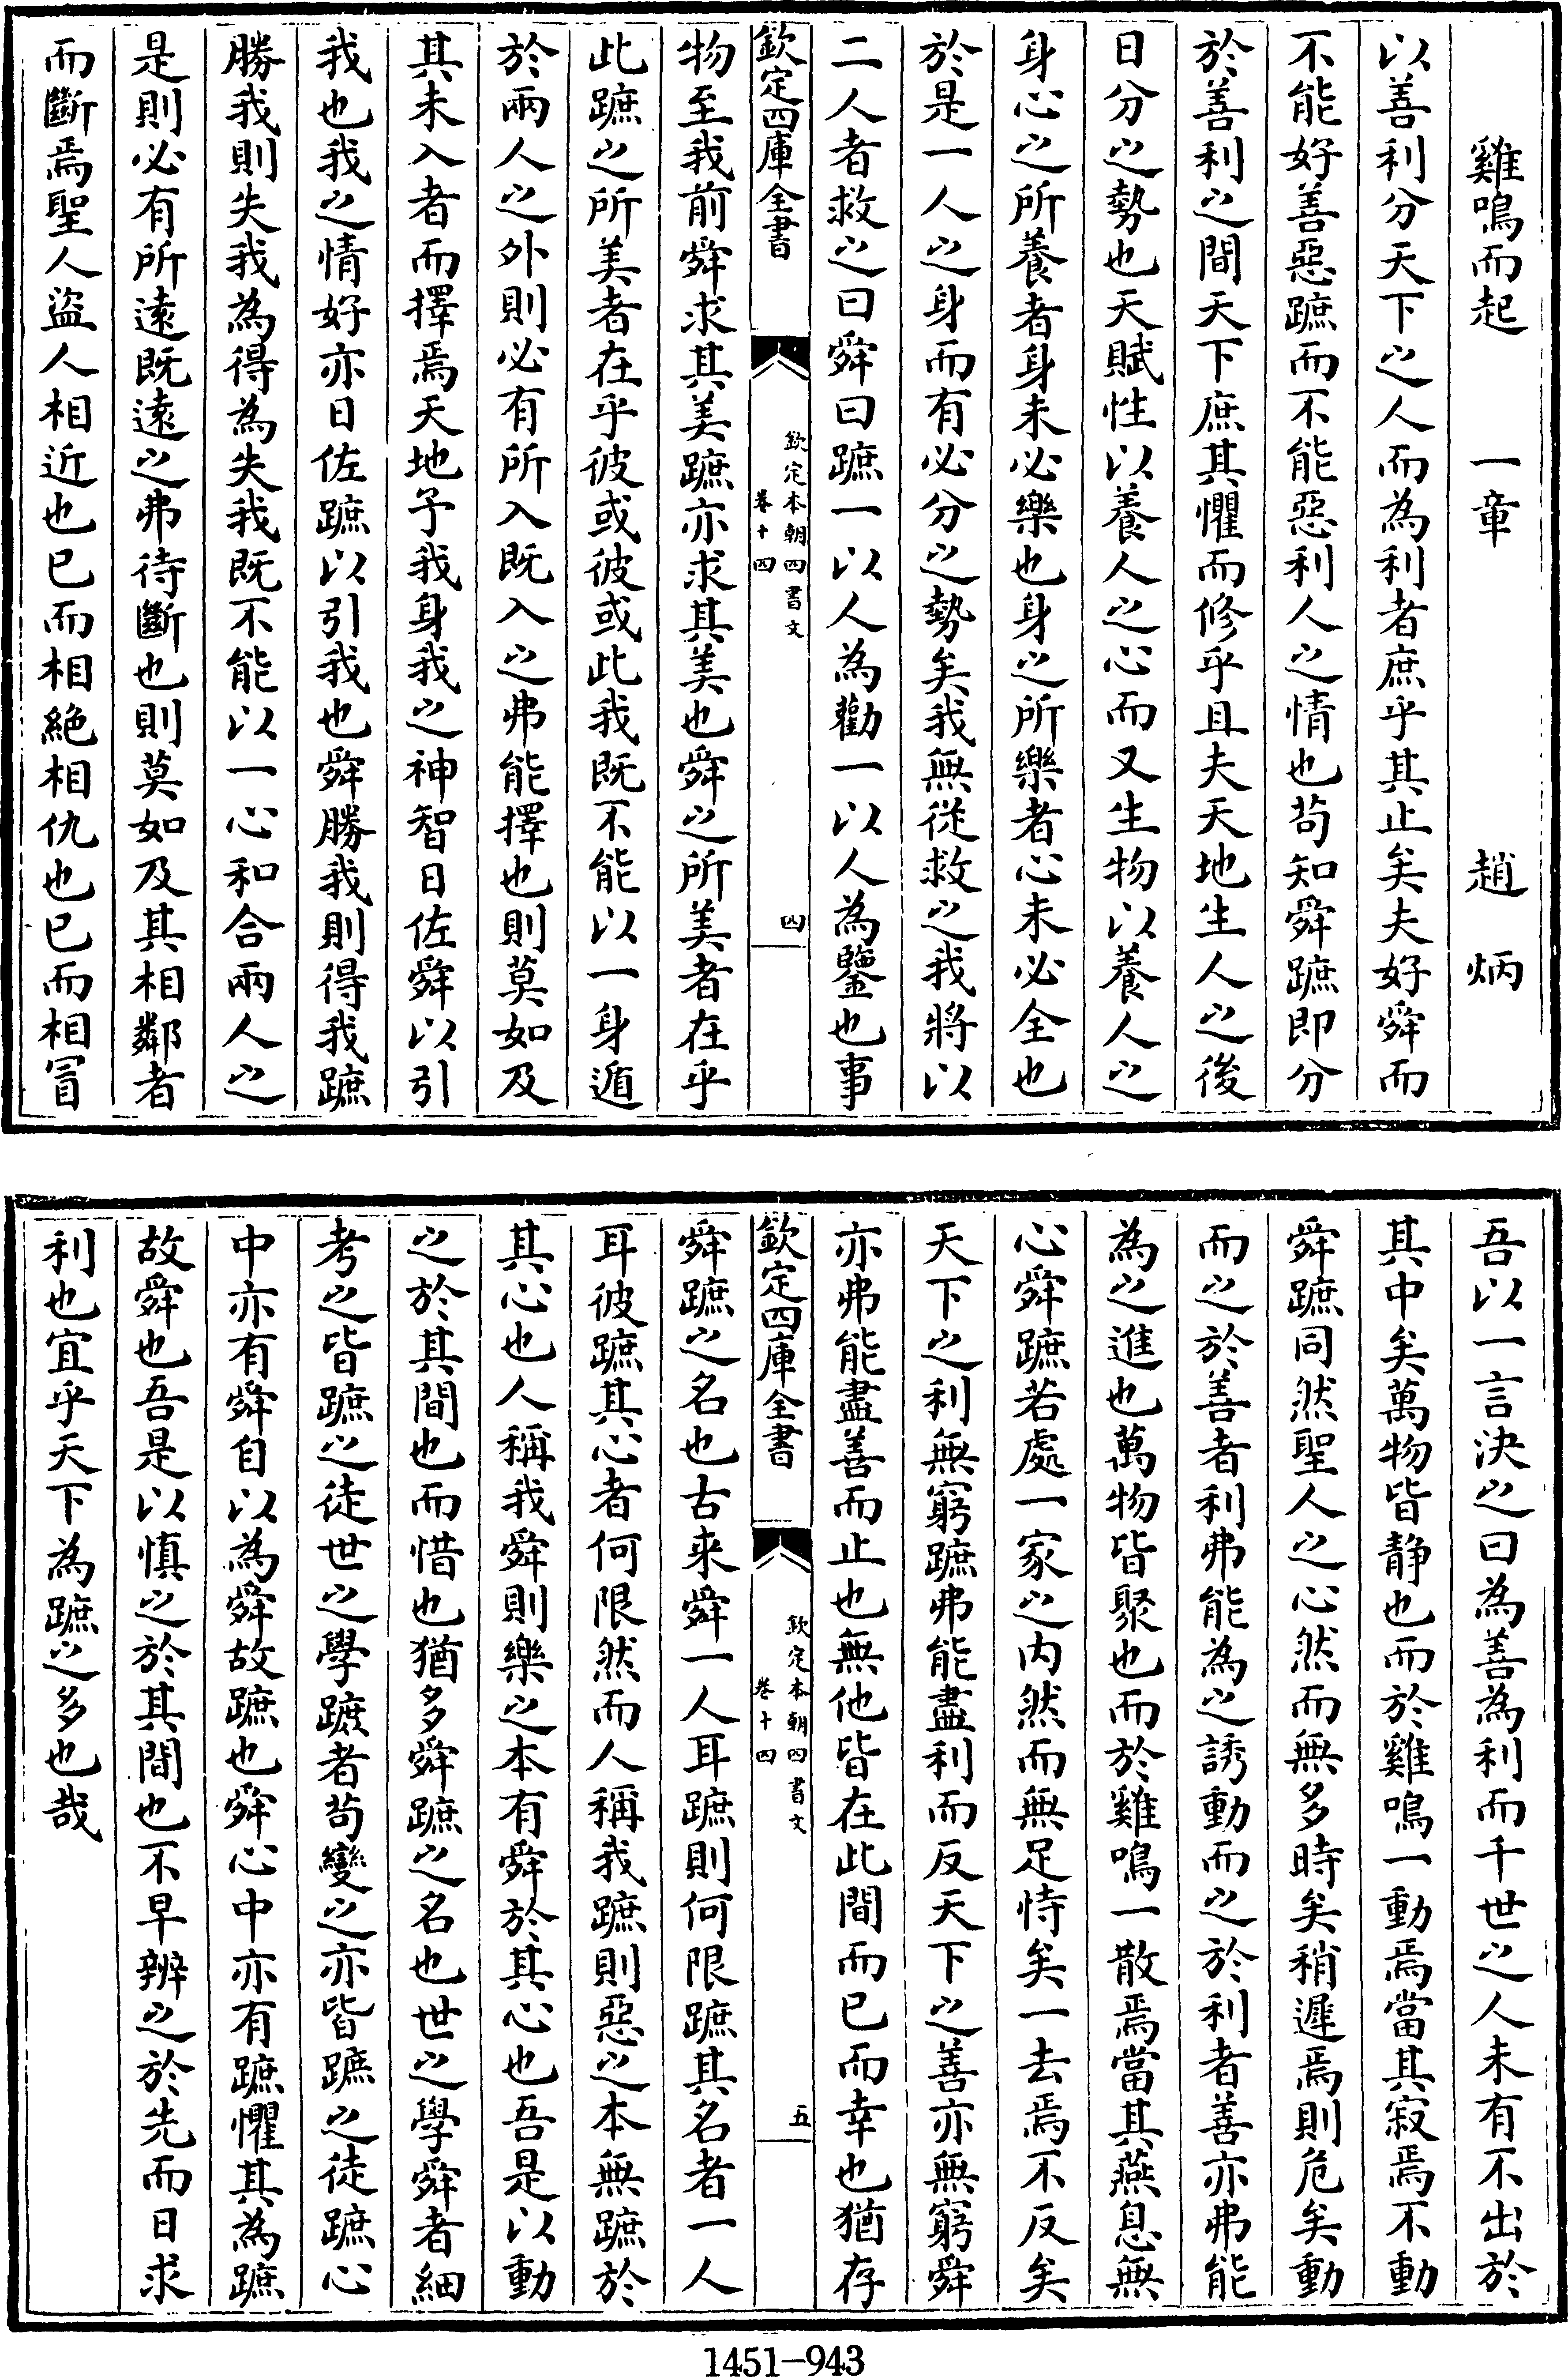 雞鳴而起　一章　趙炳
以善利分天下之人而為利者庶乎其止矣夫好舜而
不能好善惡蹠而不能惡利人之情也苟知舜蹠即分
於善利之間天下庶其懼而修乎且夫天地生人之後
日分之勢也天賦性以養人之心而又生物以養人之
身心之所養者身未必樂也身之所樂者心未必全也
於是一人之身而有必分之勢矣我無從救之我將以
二人者救之曰舜曰蹠一以人為勸一以人為鑒也事
欽定四庫全書
欽定本朝四書文
卷十四
四
物至我前舜求其美蹠亦求其美也舜之所美者在乎
此蹠之所美者在乎彼或彼或此我既不能以一身遁
於兩人之外則必有所入既入之弗能擇也則莫如及
其未入者而擇焉天地予我身我之神智日佐舜以引
我也我之情好亦日佐蹠以引我也舜勝我則得我蹠
勝我則失我為得為失我既不能以一心和合兩人之
是則必有所遠既遠之弗待斷也則莫如及其相鄰者
而斷焉聖人盜人相近也已而相絕相仇也已而相冒
吾以一言決之曰為善為利而千世之人未有不出於
其中矣萬物皆靜也而於雞鳴一動焉當其寂焉不動
舜蹠同然聖人之心然而無多時矣稍遲焉則危矣動
而之於善者利弗能為之誘動而之於利者善亦弗能
為之進也萬物皆聚也而於雞鳴一散焉當其燕息無
心舜蹠若處一家之內然而無足恃矣一去焉不反矣
天下之利無窮蹠弗能盡利而反天下之善亦無窮舜
亦弗能盡善而止也無他皆在此間而已而幸也猶存
欽定四庫全書
欽定本朝四書文
卷十四
五
舜蹠之名也古来舜一人耳蹠則何限蹠其名者一人
耳彼蹠其心者何限然而人稱我蹠則惡之本無蹠於
其心也人稱我舜則樂之本有舜於其心也吾是以動
之於其間也而惜也猶多舜蹠之名也世之學舜者細
考之皆蹠之徒世之學蹠者苟變之亦皆蹠之徒蹠心
中亦有舜自以為舜故蹠也舜心中亦有蹠懼其為蹠
故舜也吾是以慎之於其間也不早辨之於先而日求
利也宜乎天下為蹠之多也哉
1451-943